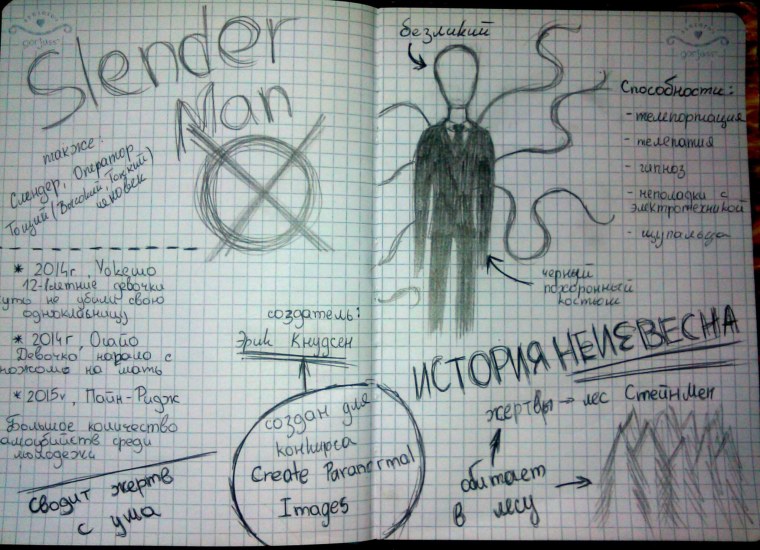 Slender
Man
также:
Слендер, Оператор,
Тощий (Высокий, Тонкий)
человек
* 2014г, Уокешо
12-летние девочки
чуть не убили свою
одноклассницу
* 2014г, Огайо
Девочка напала с
ножом на мать
* 2015г, Пайн-Ридж
Большое количество
самоубийств среди
молодежи
сводит жертв
с ума
создатель:
Эрик Кнудсен
создан для
конкурса
Create Paranormal
Images
безликий
Способности:
- телепортация
- телепатия
- гипноз
- неполадки с
электротехникой
- щупальца
черный
похоронный
костюм
ИСТОРИЯ НЕИЗВЕСНА
жертвы → лес СтейнМен
обитает →
в лесу